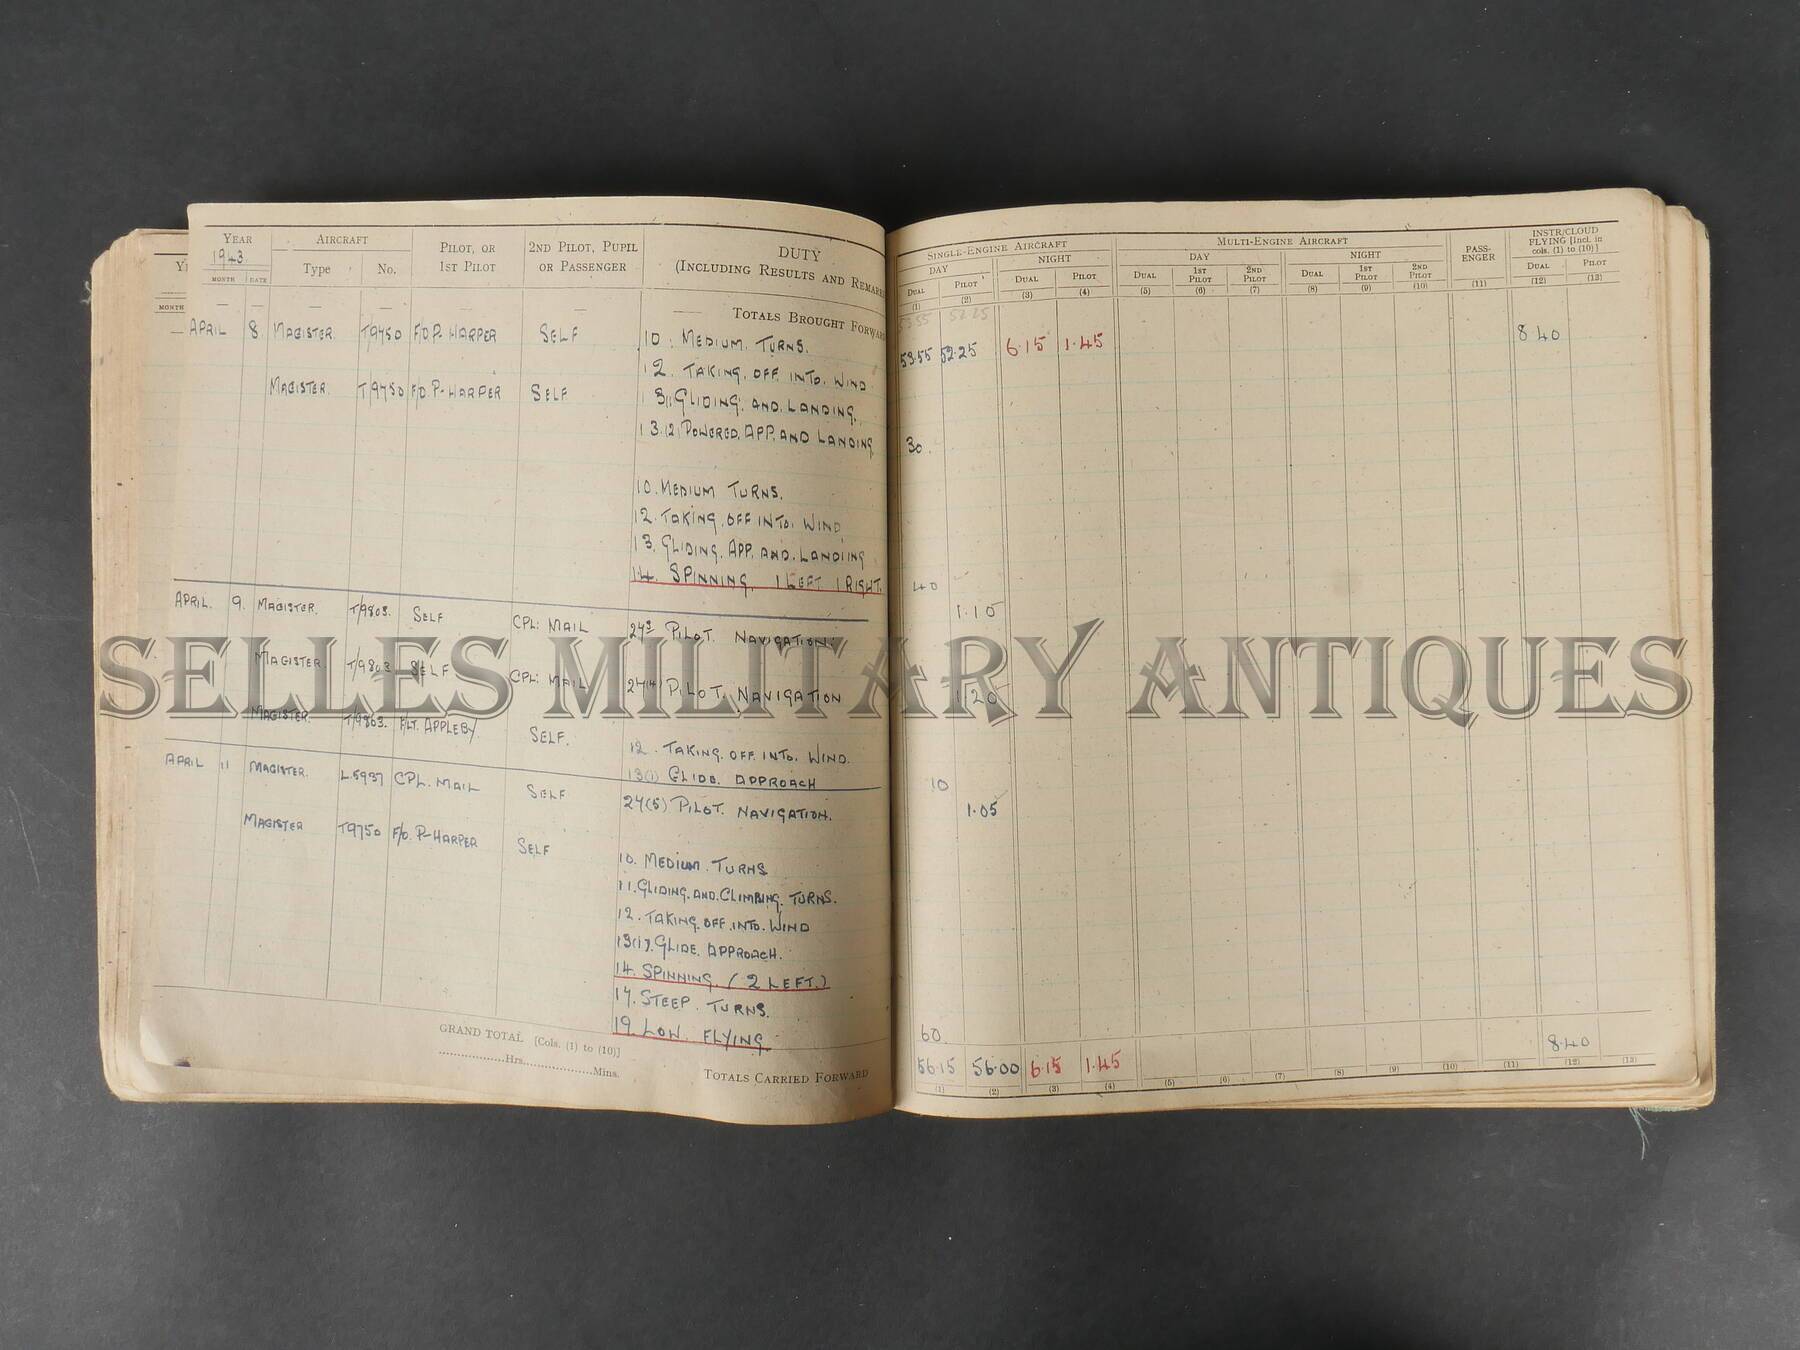 YEAR AIRCRAFT PILOT, OR 1ST PILOT 2ND PILOT, PUPIL OR PASSENGER DUTY (INCLUDING RESULTS AND REMARKS
1943
MONTH DATE Type No.
— — — — — — TOTALS BROUGHT FORWARD
APRIL 8 MAGISTER. T/9750 F/O P-HARPER SELF 10. MEDIUM. TURNS.
12. TAKING. OFF. INTO. WIND
MAGISTER. T/9750 F/O. P-HARPER SELF 13(1) GLIDING. AND. LANDING.
13.(2) POWERED. APP. AND LANDING
10. MEDIUM TURNS.
12. TAKING. OFF INTO. WIND
13. GLIDING. APP. AND. LANDIING
14. SPINNING. 1 LEFT 1 RIGHT.
APRIL. 9. MAGISTER. T/9803. SELF CPL: MAIL 24 PILOT. NAVIGATION.
MAGISTER. T/9803 SELF CPL: MAIL 24(4) PILOT. NAVIGATION
MAGISTER. T/9803. F/LT. APPLEBY. SELF. 12. TAKING. OFF. INTO. WIND.
13(1) GLIDE. APPROACH
APRIL 11 MAGISTER. L.5937 CPL. MAIL SELF 24(5) PILOT. NAVIGATION.
MAGISTER T9750 F/O. P-HARPER SELF 10. MEDIUM. TURNS
11. GLIDING. AND. CLIMBING. TURNS.
12. TAKING. OFF. INTO. WIND
13(1). GLIDE. APPROACH.
14. SPINNING. (2 LEFT.)
17. STEEP. TURNS.
19. LOW. FLYING.
GRAND TOTAL [Cols. (1) to (10)]
Hrs. Mins.
TOTALS CARRIED FORWARD
SINGLE-ENGINE AIRCRAFT MULTI-ENGINE AIRCRAFT PASS-ENGER INSTR/CLOUD FLYING [Incl. in cols. (1) to (10)]
DAY NIGHT DAY NIGHT
DUAL PILOT DUAL PILOT DUAL 1ST PILOT 2ND PILOT DUAL 1ST PILOT 2ND PILOT DUAL PILOT
(1) (2) (3) (4) (5) (6) (7) (8) (9) (10) (11) (12) (13)
53.55 52.25
53.55 52.25 6.15 1.45 8.40
30.
40
1.10
1.20
10
1.05
60.
56.15 56.00 6.15 1.45 8.40
(1) (2) (3) (4) (5) (6) (7) (8) (9) (10) (11) (12) (13)
SELLES MILITARY ANTIQUES